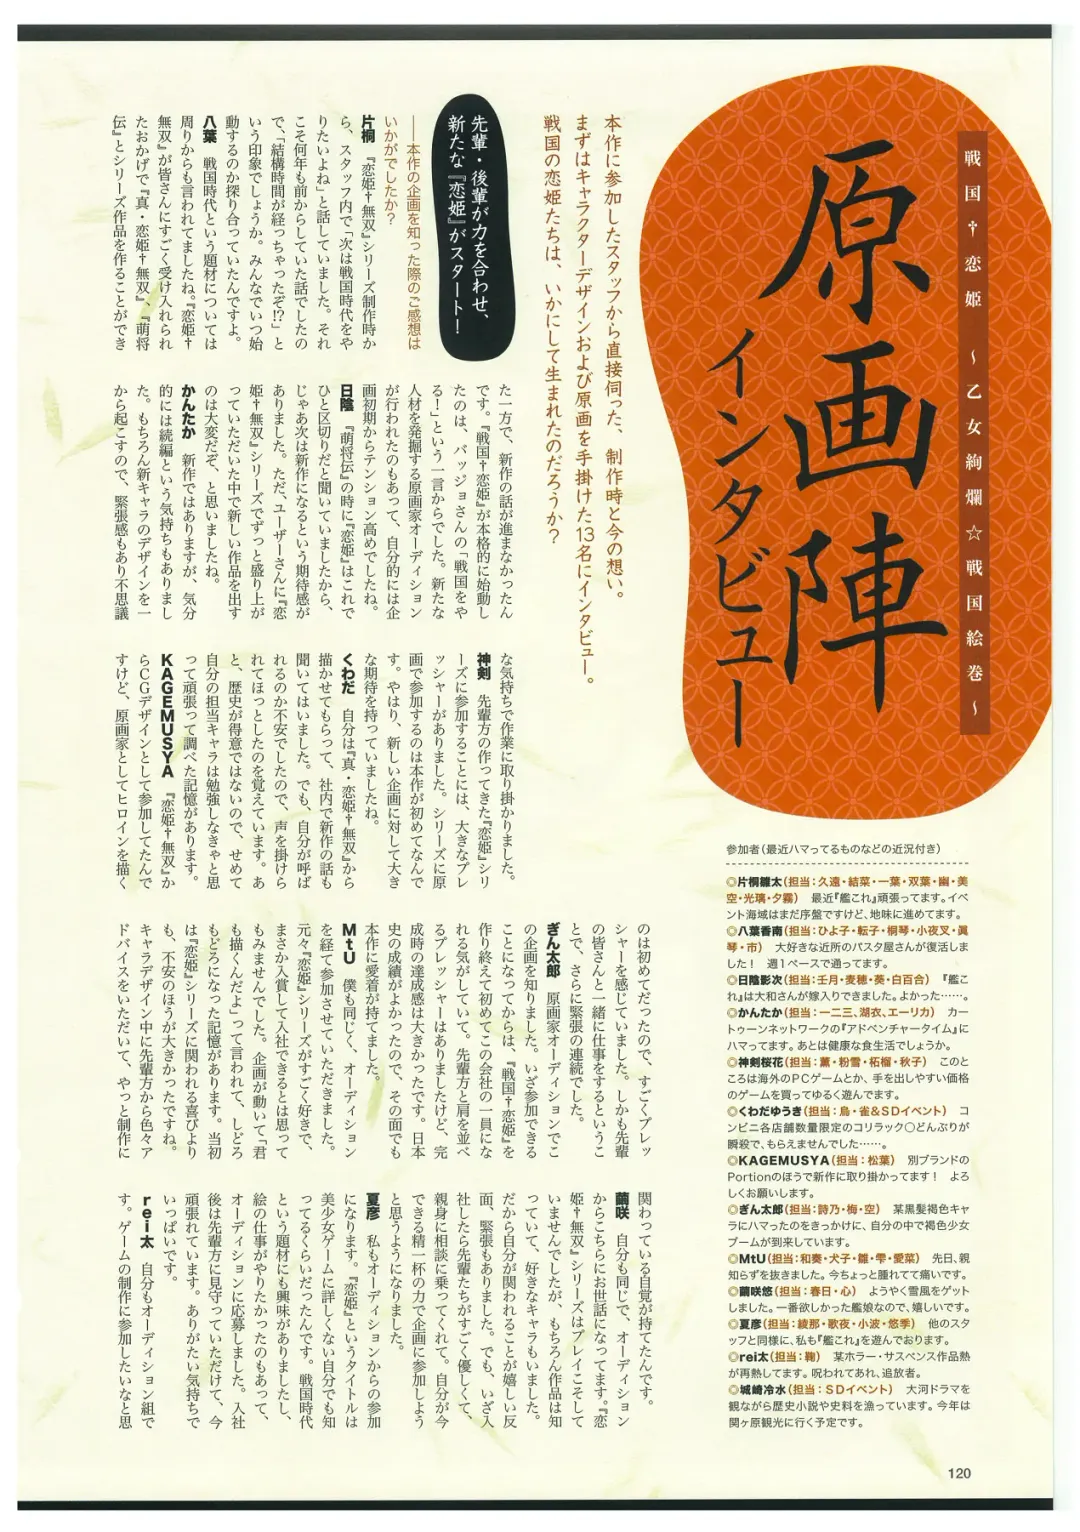 戦国†恋姫 〜乙女絢爛☆戦国絵巻〜
原画陣
インタビュー
本作に参加したスタッフから直接伺った、制作時と今の想い。
まずはキャラクターデザインおよび原画を手掛けた13名にインタビュー。
戦国の恋姫たちは、いかにして生まれたのだろうか？
先輩・後輩が力を合わせ、
新たな『恋姫』がスタート！
――本作の企画を知った際のご感想は
いかがでしたか？
片桐　『恋姫†無双』シリーズ制作時か
ら、スタッフ内で「次は戦国時代をや
りたいよね」と話していました。それ
こそ何年も前からしていた話でしたの
で、「結構時間が経っちゃったぞ!?」と
いう印象でしょうか。みんなでいつ始
動するのか探り合っていたんですよ。
八葉　戦国時代という題材については
周りからも言われてましたね。『恋姫†
無双』が皆さんにすごく受け入れられ
たおかげで『真・恋姫†無双』、『萌将
伝』とシリーズ作品を作ることができ
た一方で、新作の話が進まなかったん
です。『戦国†恋姫』が本格的に始動し
たのは、バッジョさんの「戦国をや
る！」という一言からでした。新たな
人材を発掘する原画家オーディション
が行われたのもあって、自分的には企
画初期からテンション高めでしたね。
日陰　『萌将伝』の時に『恋姫』はこれで
ひと区切りだと聞いていましたから、
じゃあ次は新作になるという期待感が
ありました。ただ、ユーザーさんに『恋
姫†無双』シリーズでずっと盛り上が
っていただいた中で新しい作品を出す
のは大変だぞ、と思いましたね。
かんたか　新作ではありますが、気分
的には続編という気持ちもありまし
た。もちろん新キャラのデザインを一
から起こすので、緊張感もあり不思議
な気持ちで作業に取り掛かりました。
神剣　先輩方の作ってきた『恋姫』シリ
ーズに参加することには、大きなプレ
ッシャーがありました。シリーズに原
画で参加するのは本作が初めてなんで
す。やはり、新しい企画に対して大き
な期待を持っていましたね。
くわだ　自分は『真・恋姫†無双』から
描かせてもらって、社内で新作の話も
聞いてはいました。でも、自分が呼ば
れるのか不安でしたので、声を掛けら
れてほっとしたのを覚えています。あ
と、歴史が得意ではないので、せめて
自分の担当キャラは勉強しなきゃと思
って頑張って調べた記憶があります。
KAGEMUSYA　『恋姫†無双』か
らCGデザインとして参加してたんで
すけど、原画家としてヒロインを描く
のは初めてだったので、すごくプレッ
シャーを感じていました。しかも先輩
の皆さんと一緒に仕事をするというこ
とで、さらに緊張の連続でした。
ぎん太郎　原画家オーディションでこ
の企画を知りました。いざ参加できる
ことになってからは、『戦国†恋姫』を
作り終えて初めてこの会社の一員にな
れる気がしていて。先輩方と肩を並べ
るプレッシャーはありましたけど、完
成時の達成感は大きかったです。日本
史の成績がよかったので、その面でも
本作に愛着が持てました。
MtU　僕も同じく、オーディション
を経て参加させていただきました。
元々『恋姫』シリーズがすごく好きで、
まさか入賞して入社できるとは思って
もみませんでした。企画が動いて「君
も描くんだよ」って言われて、しどろ
もどろになった記憶があります。当初
は『恋姫』シリーズに関われる喜びより
も、不安のほうが大きかったですね。
キャラデザイン中に先輩方から色々ア
ドバイスをいただいて、やっと制作に
関わっている自覚が持てたんです。
繭咲　自分も同じで、オーディション
からこちらにお世話になってます。『恋
姫†無双』シリーズはプレイこそして
いませんでしたが、もちろん作品は知
っていて、好きなキャラもいました。
だから自分が関われることが嬉しい反
面、緊張もありました。でも、いざ入
社したら先輩たちがすごく優しくて、
親身に相談に乗ってくれて。自分が今
できる精一杯の力で企画に参加しよう
と思うようになりました。
夏彦　私もオーディションからの参加
になります。『恋姫』というタイトルは
美少女ゲームに詳しくない自分でも知
ってるくらいだったんです。戦国時代
という題材にも興味がありましたし、
絵の仕事がやりたかったのもあって、
オーディションに応募しました。入社
後は先輩方に見守っていただけて、今
頑張れています。ありがたい気持ちで
いっぱいです。
rei太　自分もオーディション組で
す。ゲームの制作に参加したいなと思
参加者（最近ハマってるものなどの近況付き）
◎片桐雛太（担当：久遠・結菜・一葉・双葉・幽・美
空・光璃・夕霧）　最近『艦これ』頑張ってます。イベ
ント海域はまだ序盤ですけど、地味に進めてます。
◎八葉香南（担当：ひよ子・転子・桐琴・小夜叉・眞
琴・市）　大好きな近所のパスタ屋さんが復活しま
した！　週1ペースで通ってます。
◎日陰影次（担当：壬月・麦穂・葵・白百合）　『艦こ
れ』は大和さんが嫁入りできました。よかった……。
◎かんたか（担当：一二三、湖衣、エーリカ）　カー
トゥーンネットワークの『アドベンチャータイム』に
ハマってます。あとは健康な食生活でしょうか。
◎神剣桜花（担当：薫・粉雪・柘榴・秋子）　このと
ころは海外のPCゲームとか、手を出しやすい価格
のゲームを買ってゆるく遊んでます。
◎くわだゆうき（担当：烏・雀＆SDイベント）　コ
ンビニ各店舗数量限定のコリラック○どんぶりが
瞬殺で、もらえませんでした……。
◎KAGEMUSYA（担当：松葉）　別ブランドの
Portionのほうで新作に取り掛かってます！　よろ
しくお願いします。
◎ぎん太郎（担当：詩乃・梅・空）　某黒髪褐色キャ
ラにハマったのをきっかけに、自分の中で褐色少女
ブームが到来しています。
◎MtU（担当：和奏・犬子・雛・雫・愛菜）　先日、親
知らずを抜きました。今ちょっと腫れてて痛いです。
◎繭咲悠（担当：春日・心）　ようやく雪風をゲット
しました。一番欲しかった艦娘なので、嬉しいです。
◎夏彦（担当：綾那・歌夜・小波・悠季）　他のスタ
ッフと同様に、私も『艦これ』を遊んでおります。
◎rei太（担当：鞠）　某ホラー・サスペンス作品熱
が再熱してます。呪われてあれ、追放者。
◎城崎冷水（担当：SDイベント）　大河ドラマを
観ながら歴史小説や史料を漁っています。今年は
関ヶ原観光に行く予定です。
120